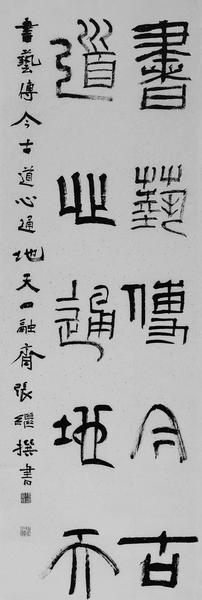 書藝傳今古
道心通地天
書藝傳今古道心通地天四融齋張繼撰書